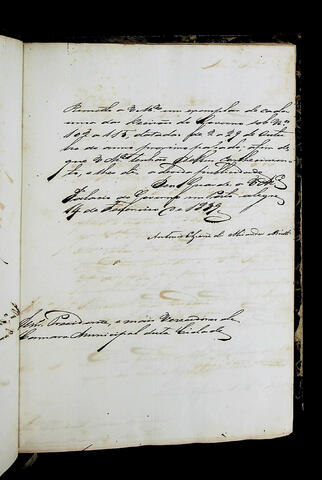 Remetto a V.Mces um exemplar de cada
uma das Decisões do Governo sob Nos
109 a 115, datadas de 2 a 29 de Outu-
bro do anno proximo passado, afim de
que V.Mces tenhão d'ellas conhecimen-
to, e lhes dê a devida publicidade.
Deos Guarde a V.Mces
Palacio do Governo em Porto Alegre
14 de Fevereiro de 1839
Antonio
Snrs. Presidente, e mais Vereadores da
Camara Municipal desta Cidade